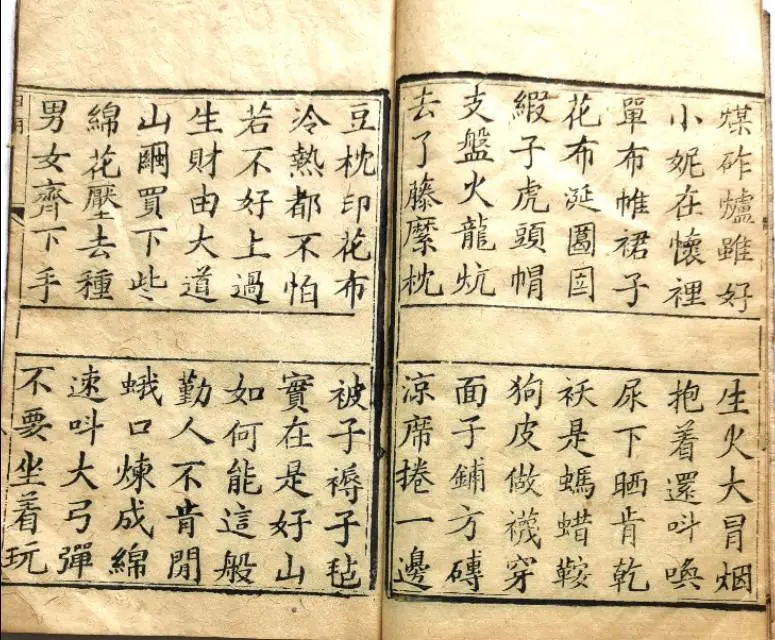 煤砟爐雖好 生火大冒烟
小妮在懷裡 抱着還呌喚
單布帷裙子 尿下晒肯乾
花布涎 袄是螞蜡鞍
子虎頭帽 狗皮做襪穿
支盤火龍炕 面子鋪方磚
去了藤縻枕 涼席捲一邊
豆枕印花布 被子褥子毡
冷熱都不怕 實在是好山
若不好上過 如何能這般
生財由大道 勤人不肯閒
山繭買下些 蛾口煉成綿
綿花壓去種 速呌大弓彈
男女齊下手 不要坐着玩